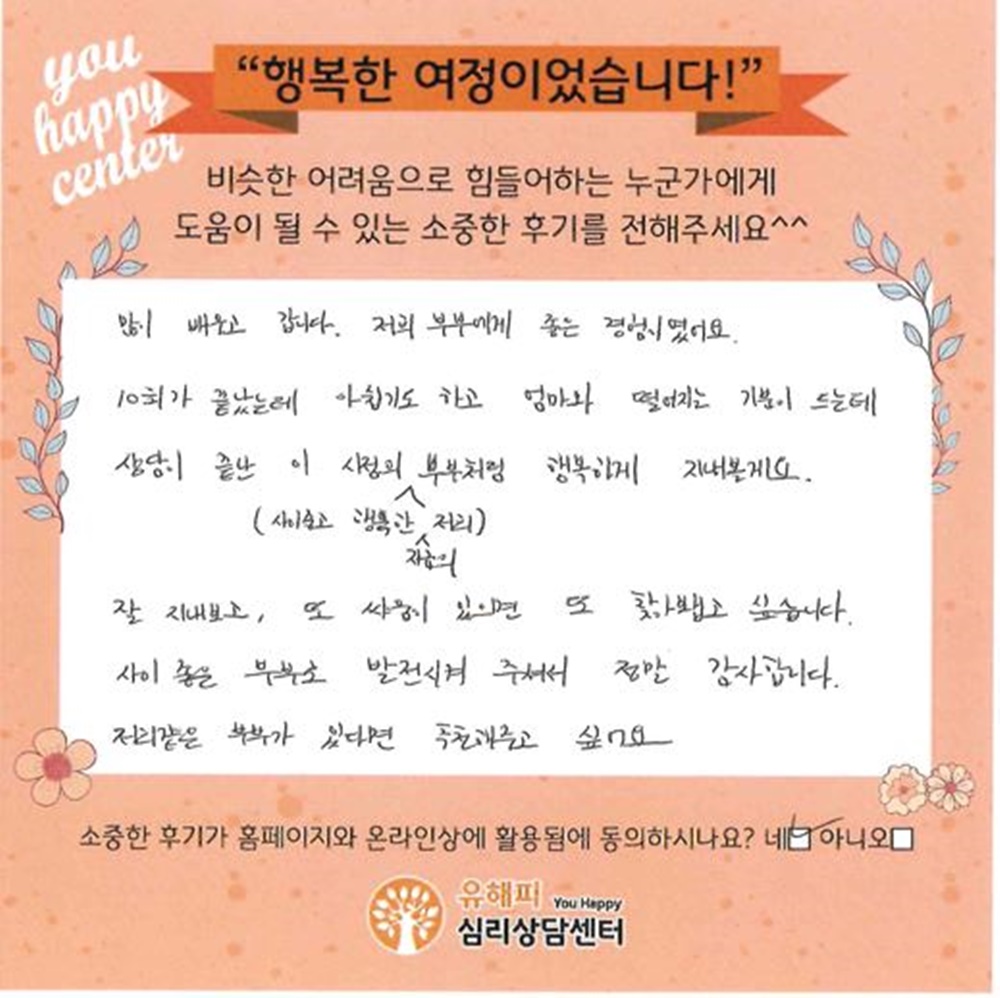 you
happy
center
“행복한 여정이었습니다!”
비슷한 어려움으로 힘들어하는 누군가에게
도움이 될 수 있는 소중한 후기를 전해주세요^^
많이 배우고 갑니다. 저희 부부에게 좋은 경험이였어요.
10회가 끝났는데 아쉽기도 하고 엄마와 떨어지는 기분이 드는데
상담이 끝난 이 시점의 부부처럼 행복하게 지내볼게요.
(사이좋고 행복한 저희)
지금의
잘 지내보고, 또 싸움이 있으면 또 찾아뵙고 싶습니다.
사이 좋은 부부로 발전시켜 주셔서 정말 감사합니다.
저희같은 부부가 있다면 추천해주고 싶어요
소중한 후기가 홈페이지와 온라인상에 활용됨에 동의하시나요? 네 아니오
유해피 You Happy
심리상담센터